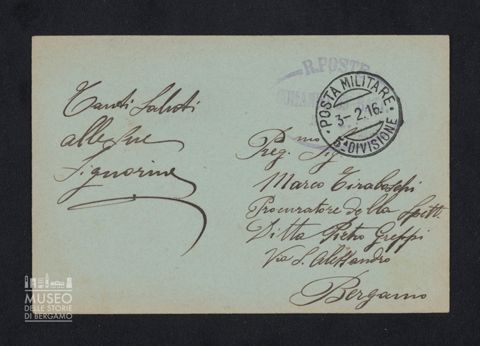 Tanti Saluti
alle sue
Signorine
R. POSTE
POSTA MILITARE
3-2.16.
5ª DIVISIONE
Preg.mo Sig
Marco Tiraboschi
Procuratore della Spett.
Ditta Pietro Greppi
Via S. Alessandro
Bergamo
MUSEO
DELLE STORIE
DI BERGAMO